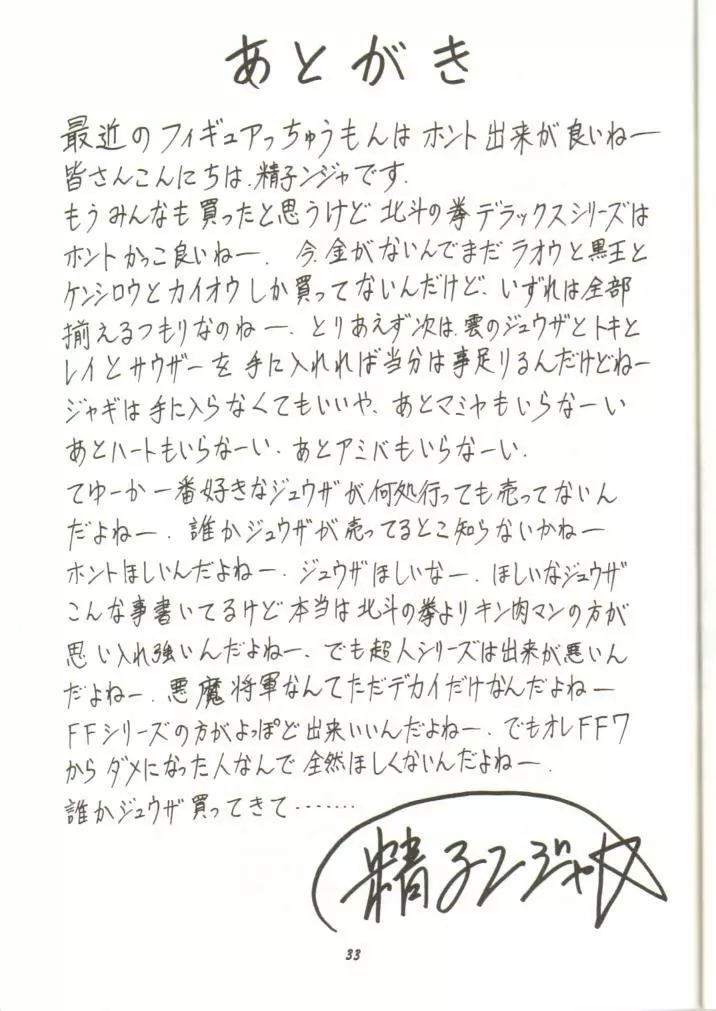 あとがき
最近のフィギュアっちゅうもんは ホント出来が良いねー
皆さんこんにちは、精子ンジャです.
もうみんなも買ったと思うけど 北斗の拳デラックスシリーズは
ホントかっこ良いねー. 今、金がないんでまだ ラオウと黒王と
ケンシロウとカイオウしか買ってないんだけど、いずれは全部
揃えるつもりなのねー. とりあえず次は、雲のジュウザとトキと
レイとサウザーを手に入れれば当分は事足りるんだけどねー
ジャギは手に入らなくてもいいや、あとマミヤもいらなーい
あとハートもいらなーい. あとアミバもいらなーい.
てゆーか一番好きなジュウザが何処行っても売ってないん
だよねー. 誰かジュウザが売ってるとこ知らないかねー
ホントほしいんだよねー. ジュウザほしいなー. ほしいなジュウザ
こんな事書いてるけど本当は北斗の拳よりキン肉マンの方が
思い入れ強いんだよねー、でも超人シリーズは出来が悪いん
だよねー. 悪魔将軍なんてただデカイだけなんだよねー
FFシリーズの方がよっぽど出来いいんだよねー. でもオレFF7
からダメになった人なんで全然ほしくないんだよねー.
誰かジュウザ買ってきて.......
精子ンジャ
33